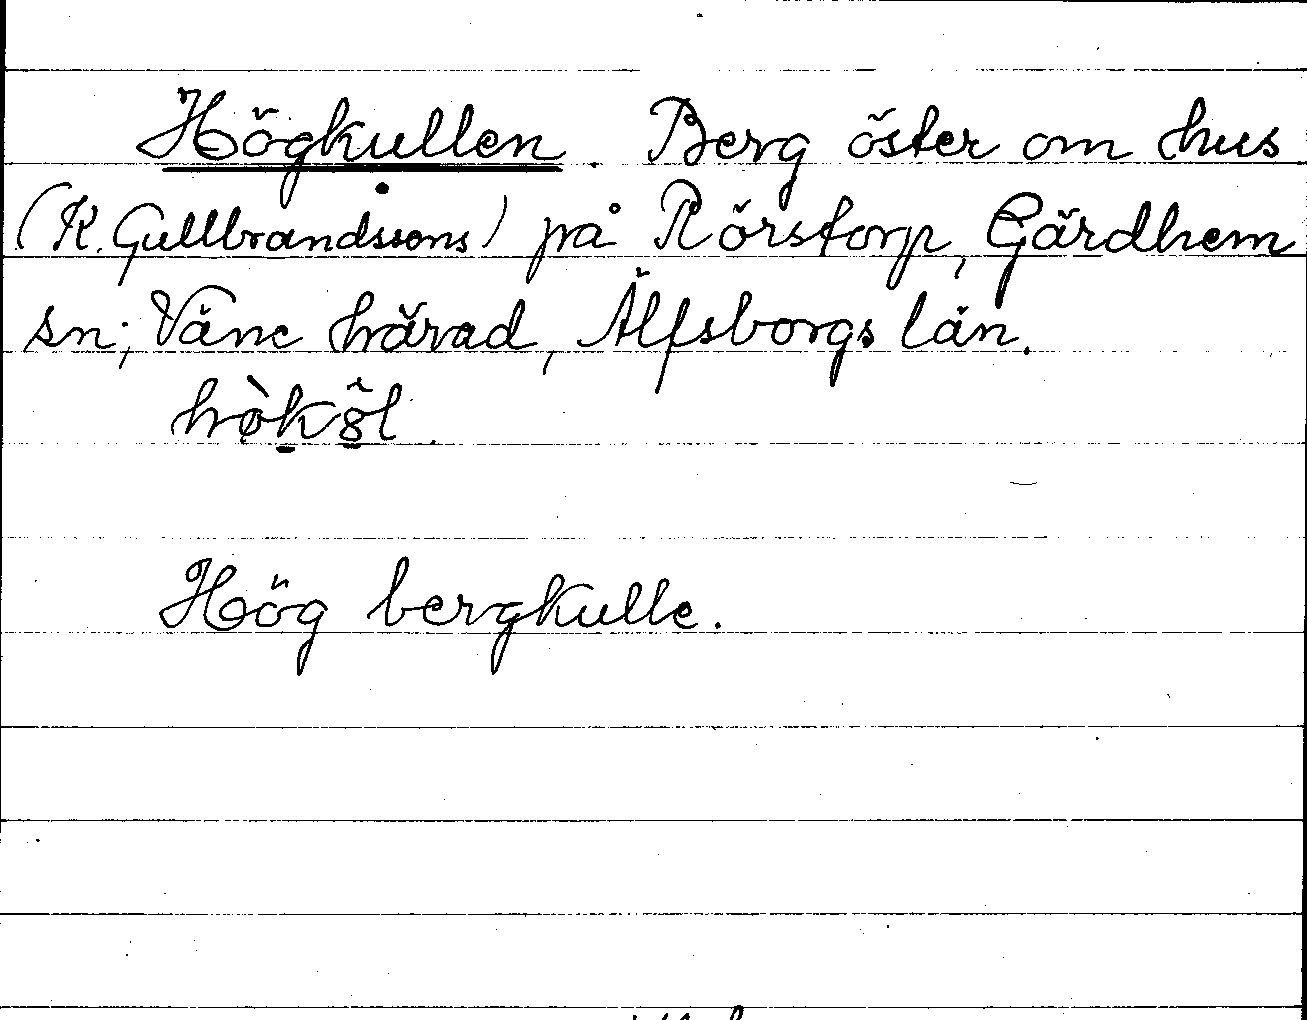 Högkullen. Berg öster om hus
(K. Gullbrandssons) på Rörstorp, Gärdhem
sn; Väne härad, Älfsborgs län.
Hög bergkulle.